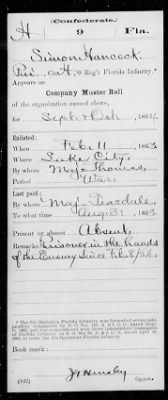 (Confederate.)
H 9 Fla.
Simon Hancock
Pvt., Co. H, 9 Reg't Florida Infantry.*
Appears on
Company Muster Roll
of the organization named above,
for Sept & Oct, 1864
Enlisted:
When Feb 11, 1863
Where Lake City,
By whom Maj. Thomas,
Period War
Last paid:
By whom Maj. Teasdale
To what time Aug 31, 1863
Present or absent Absent
Remarks: Prisoner in the hands
of the Enemy since Feb 8/64
Book mark:
(642) Copyist.